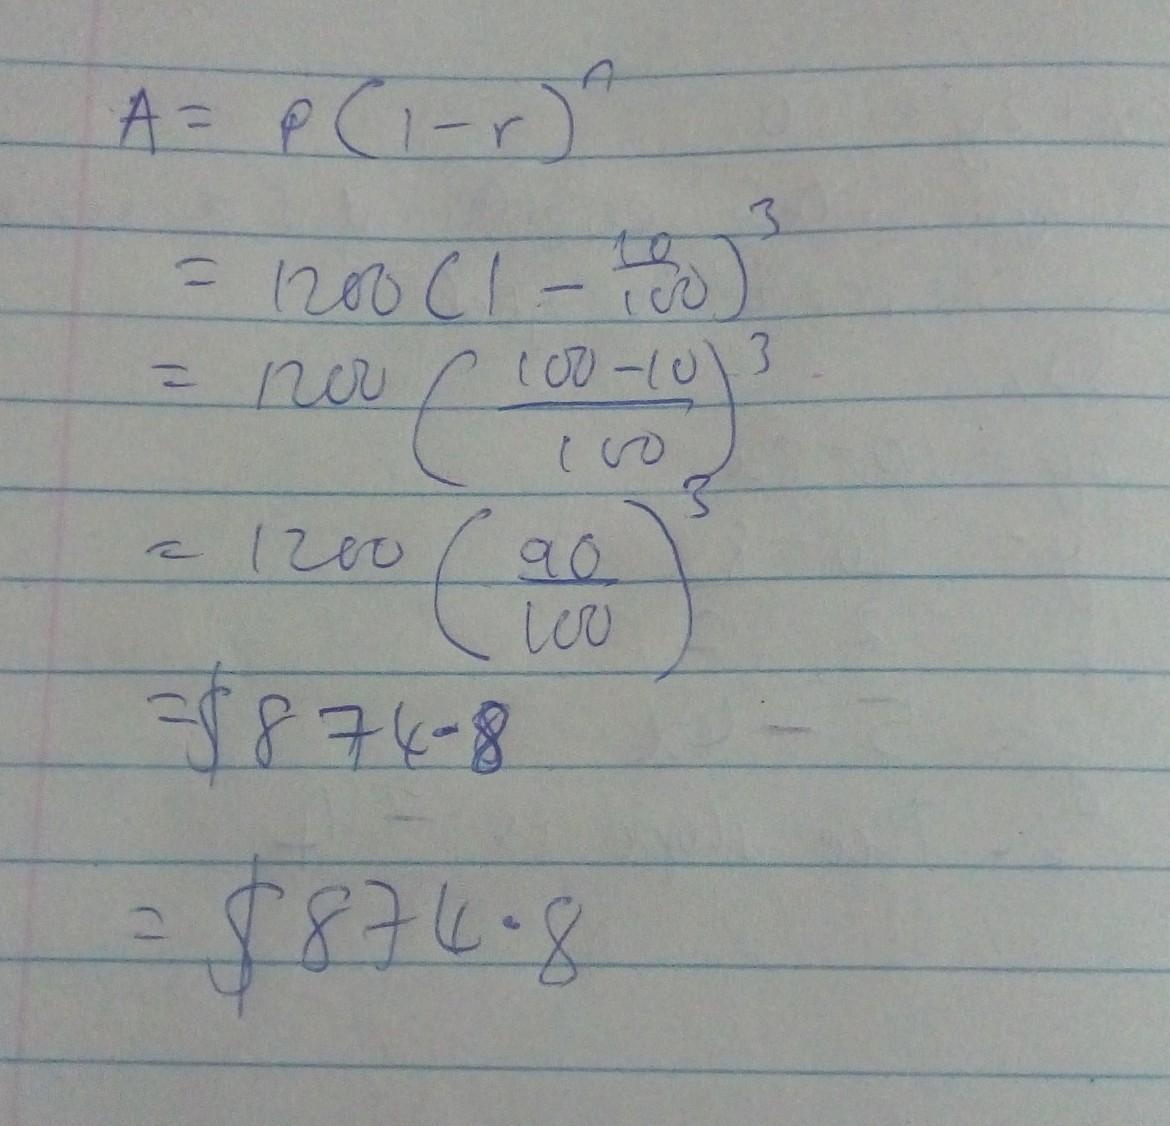 A = P(1-r)^n
= 1200(1 - 10/100)^3
= 1200((100-10)/100)^3
= 1200(90/100)^3
=$874.8
= $874.8